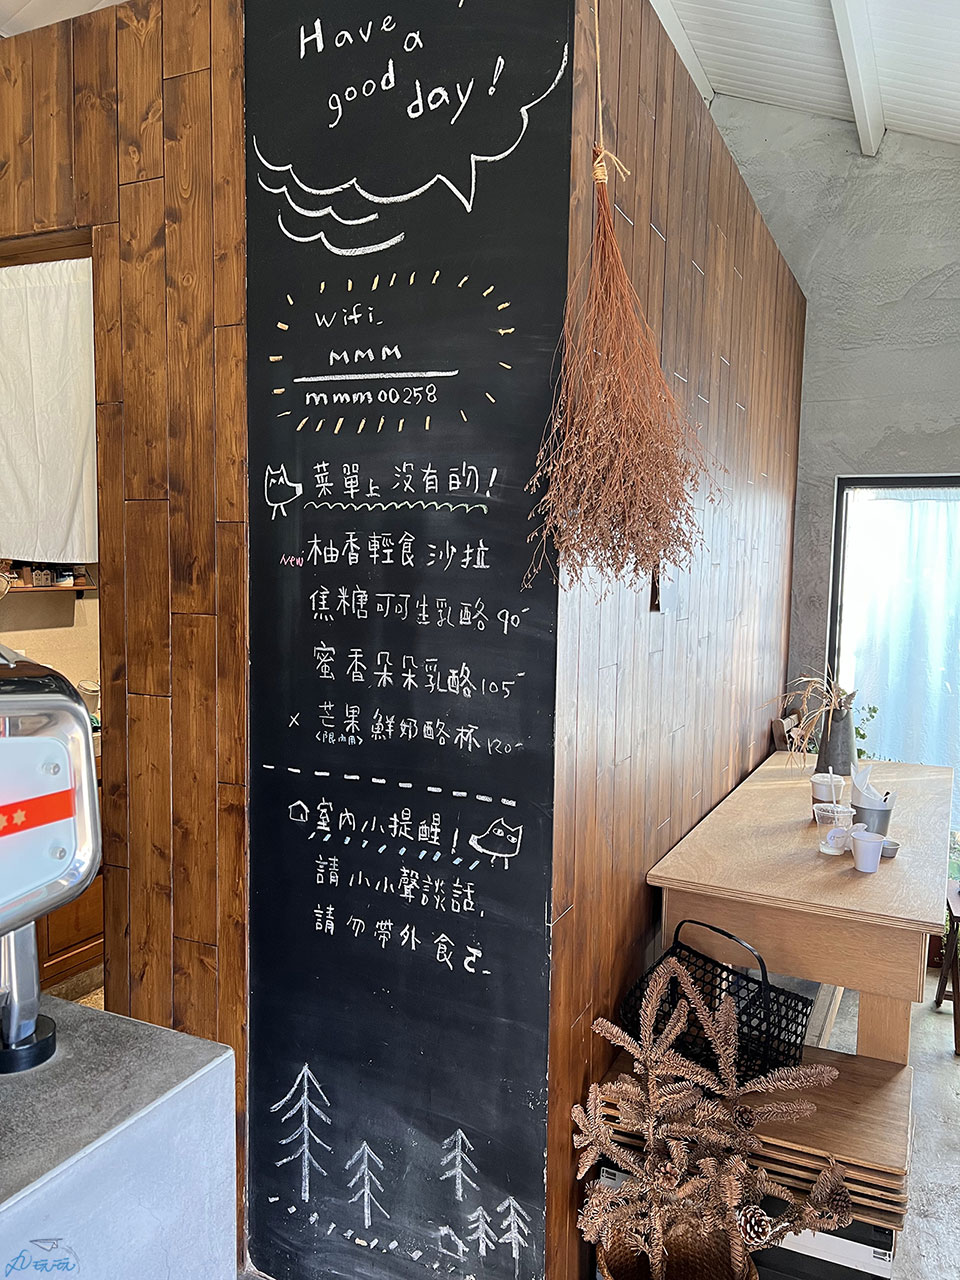 Have a
good day!
wifi_
mmm
mmm00258
菜單上沒有的!
New 柚香輕食沙拉
焦糖可可生乳酪 90-
蜜香朵朵乳酪 105-
x 芒果鮮奶酪杯 120-
<限內用>
室內小提醒!
請小小聲談話,
請勿帶外食